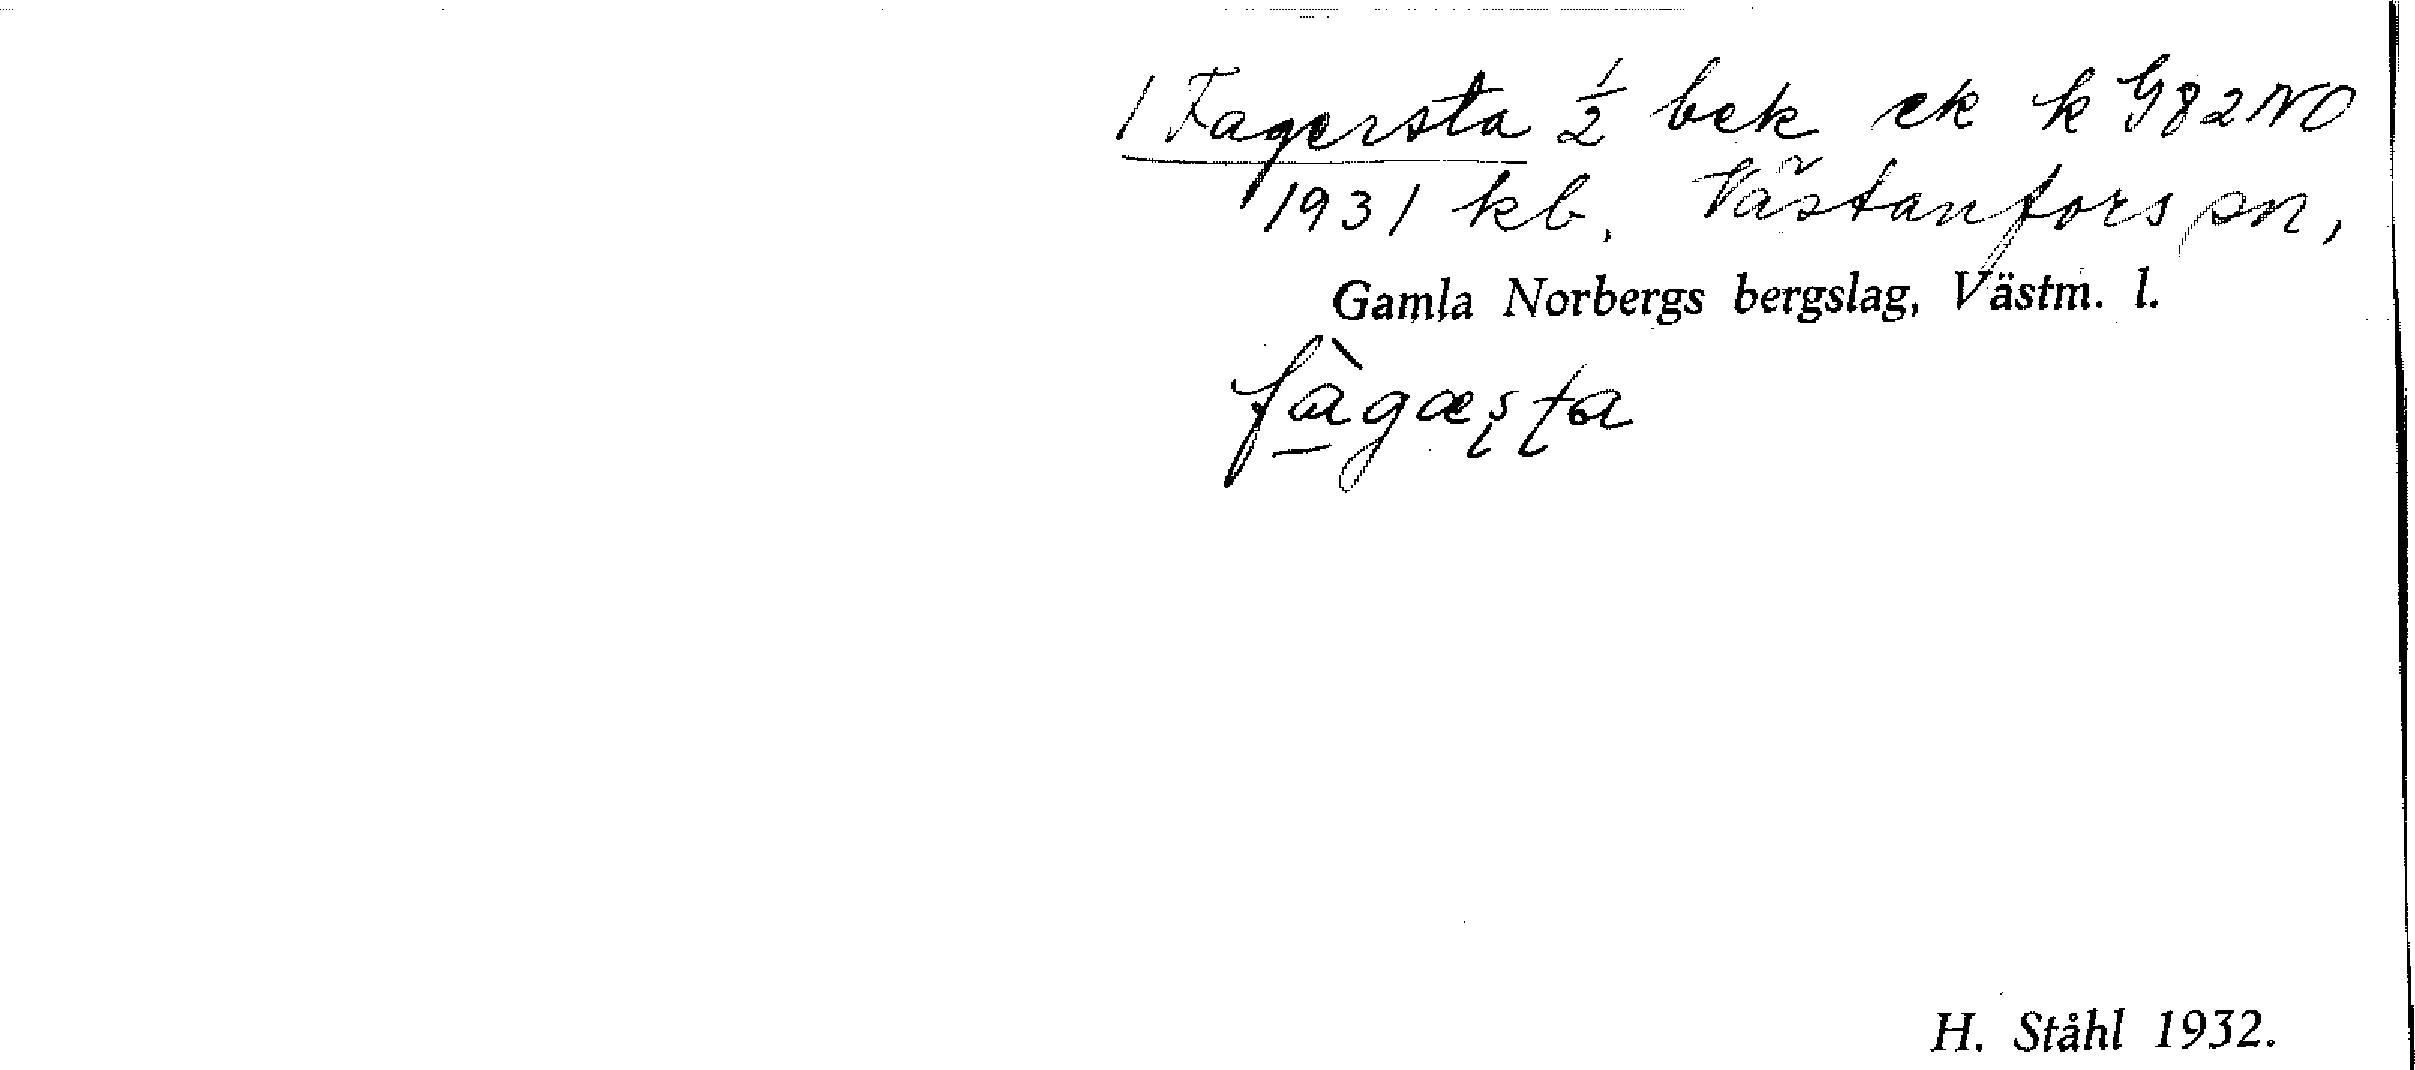 1 Fagersta ½ bek ek k G82NO
1931 kb. Västanfors sn,
Gamla Norbergs bergslag, Västm. l.
fàgæşţa
H. Ståhl 1932.